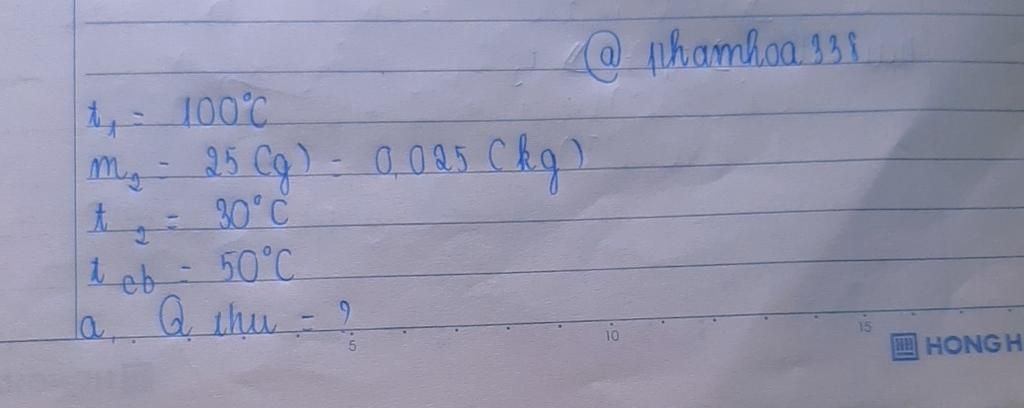 @ nhamhoa338
t₁ = 100°C
m₂ = 25 (g) = 0,025 (kg)
t₂ = 30°C
t cb = 50°C
a, Q thu = ?
5 10 15
HONG H